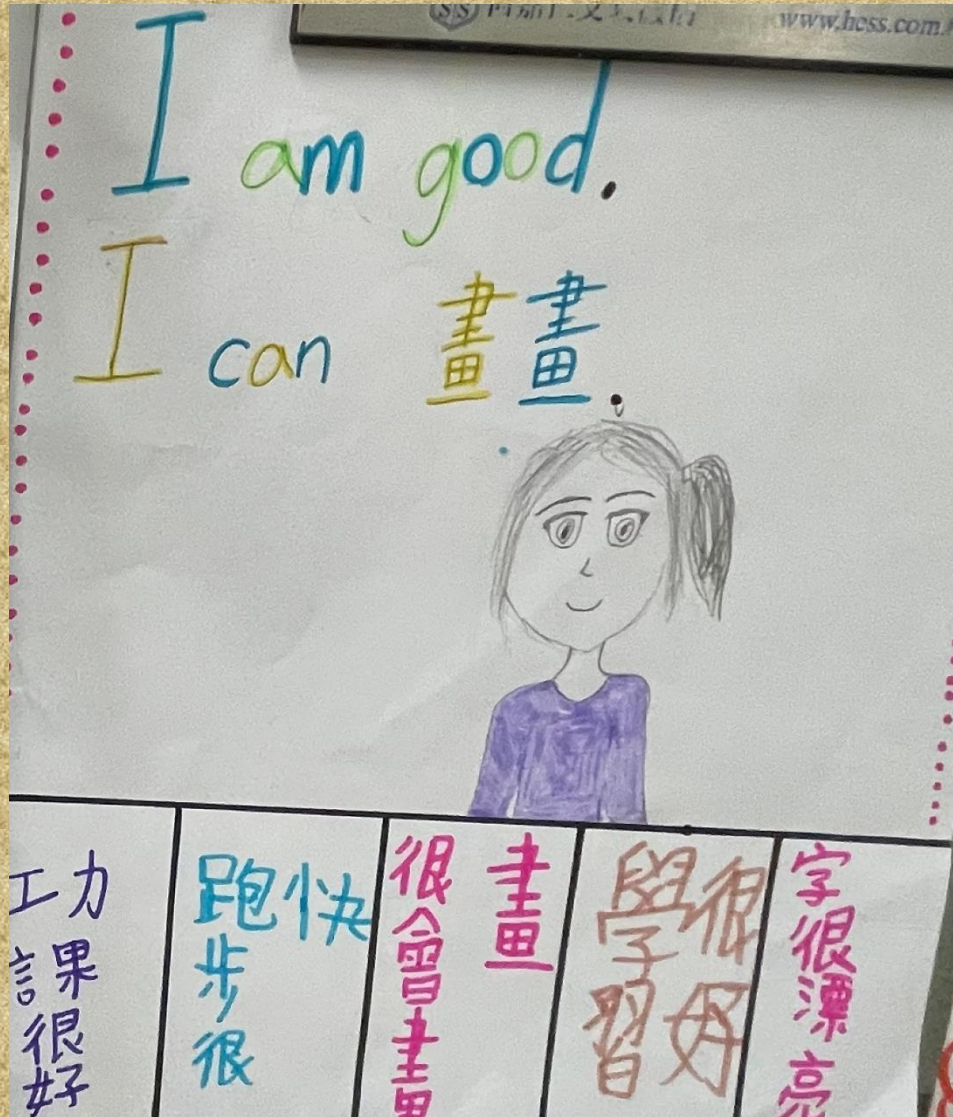 www.hess.com.
I am good.
I can 畫畫.
功課很好
跑步很
快
很會畫
畫
學習
很好
字很漂亮